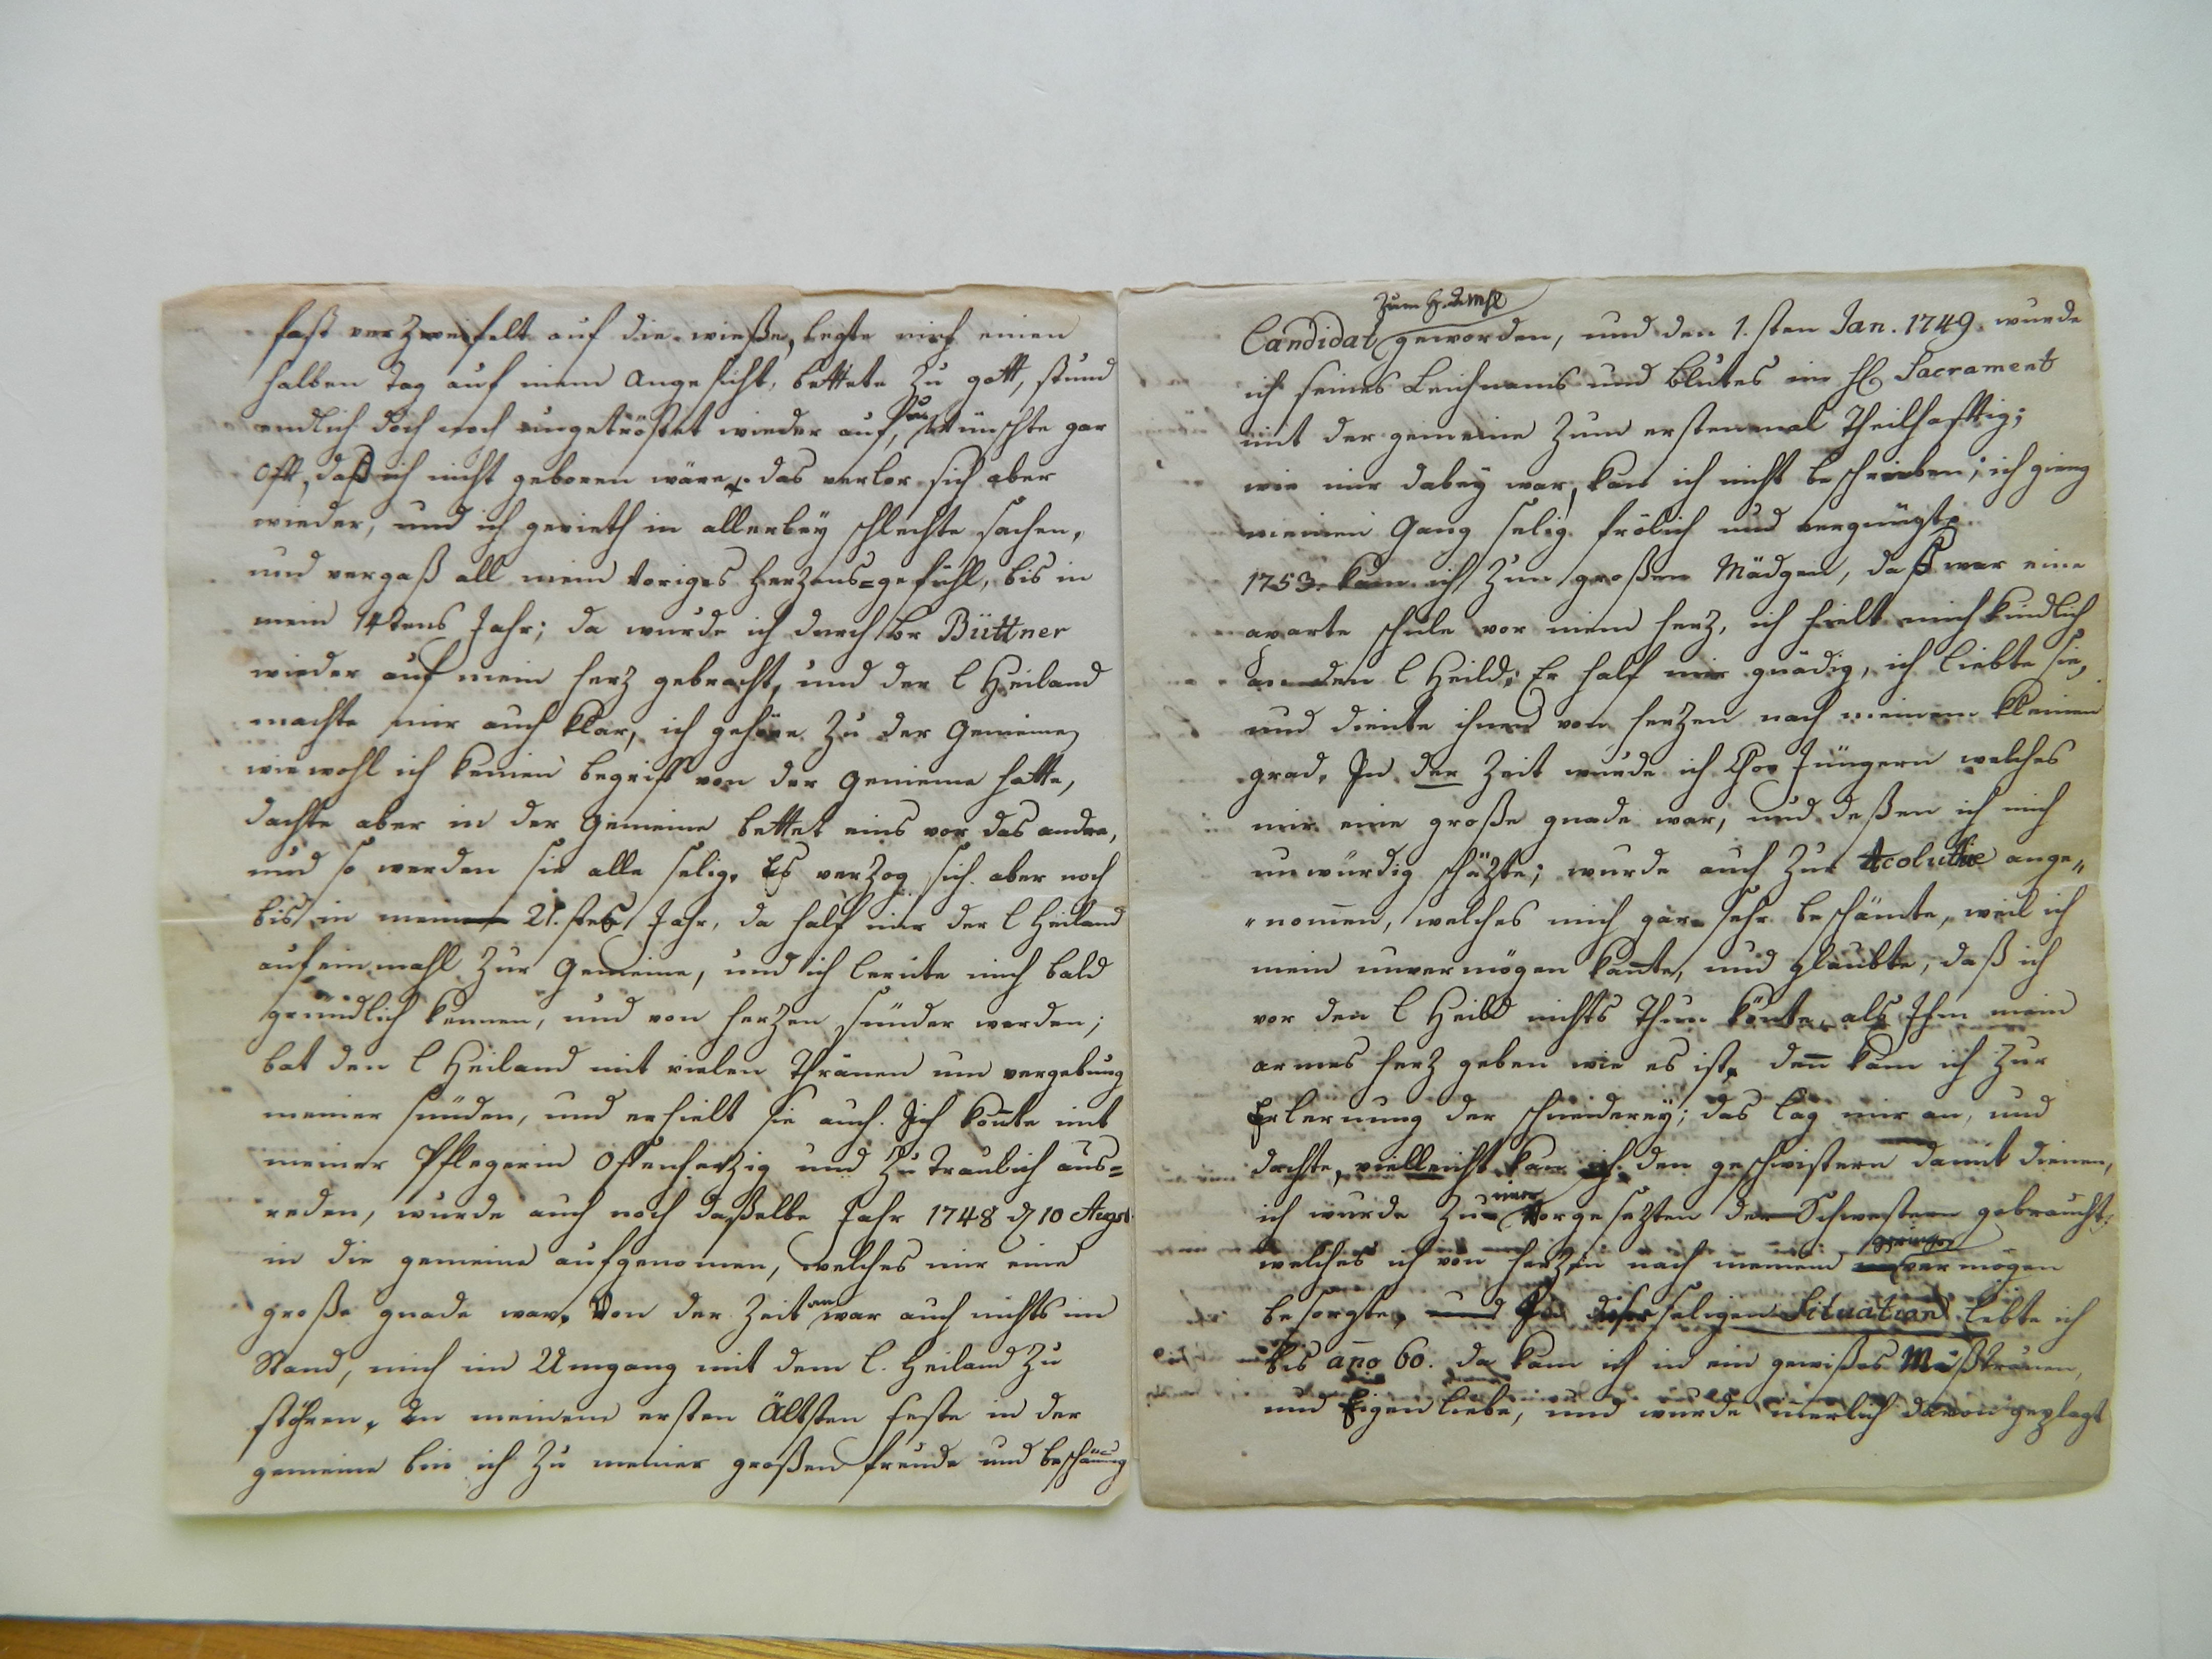 fast verzweifelt auf die wieße, legte mich einen
halben Tag auf mein angesicht, bettete zu gott, stund
endlich doch noch ungetröstet wieder auf, wünschte gar
offt, daß ich nicht geboren wäre. das verlor sich aber
wieder, und ich gerieth in allerley schlechte sachen,
und vergaß all mein voriges herzens=gefühl, bis in
mein 14tens Jahr; da wurde ich durch br Büttner
wieder auf mein herz gebracht, und der l Heiland
machte mir auch klar, ich gehöre zu der Gemeine,
wiewohl ich keinen begriff von der Gemeine hatte,
dachte aber in der Gemeine bettet eins vor das andre,
und so werden sie alle selig. Es verzog sich aber noch
bis in mein 21.stes Jahr, da half mir der l Heiland
auf ein mahl zur Gemeine, und ich lernte mich bald
gründlich kennen, und von herzen sünder werden;
bat den l Heiland mit vielen Thränen um vergebung
meiner sünden, und erhielt sie auch. Ich kon̄te mit
meiner Pflegerin offenherzig und zutraulich aus=
reden, wurde auch noch daßelbe Jahr 1748 d 10 Augst.
in die gemeine aufgenomen, welches mir eine
große gnade war. Von der Zeit an war auch nichts im
Stand, mich im Umgang mit dem l. Heiland zu
stöhren. In meinem ersten Ältsten feste in der
gemeine bin ich zu meiner großen freude und beschämung
Candidat zum h. Abmhl geworden, und den 1.sten Jan. 1749. wurde
ich seines Leichnams und Blutes im hl Sacrament
mit der gemeine zum erstenmal theilhafftig;
wie mir dabey war, kan ich nicht beschreiben; ich gieng
meinen Gang selig frölich und vergnügt.
1753. kam ich zun großen Mädgen, daß war eine
aparte schule vor mein herz, ich hielt mich kindlich
an den l Heild; Er half mir gnädig, ich liebte sie,
und diente ihnen von herzen nach meinem kleinen
grad. In der Zeit wurde ich Chor Jüngern welches
mir eine große gnade war, und deßen ich mich
unwürdig schäzte; wurde auch zur Acoluthie ange„
„nom̄en, welches mich gar sehr beschämte, weil ich
mein unvermögen kan̄te, und glaubte, daß ich
vor den l Heild nichts thun kön̄te, als Ihm mein
armes herz geben wie es ist. den̄ kam ich zur
Erlernung der schneiderey; das lag mir an, und
dachte, vielleicht kan ich den geschwistern damit dienen,
ich wurde zu einer Vorgesezten der Schwestern gebraucht,
welches ich von herzen nach meinem geringen vermögen
besorgte, und In dieser seligen Situation lebte ich
bis an̄o 60. da kam ich in ein gewißes Mißtrauen,
und Eigen liebe, und wurde in̄erlich davon geplagt